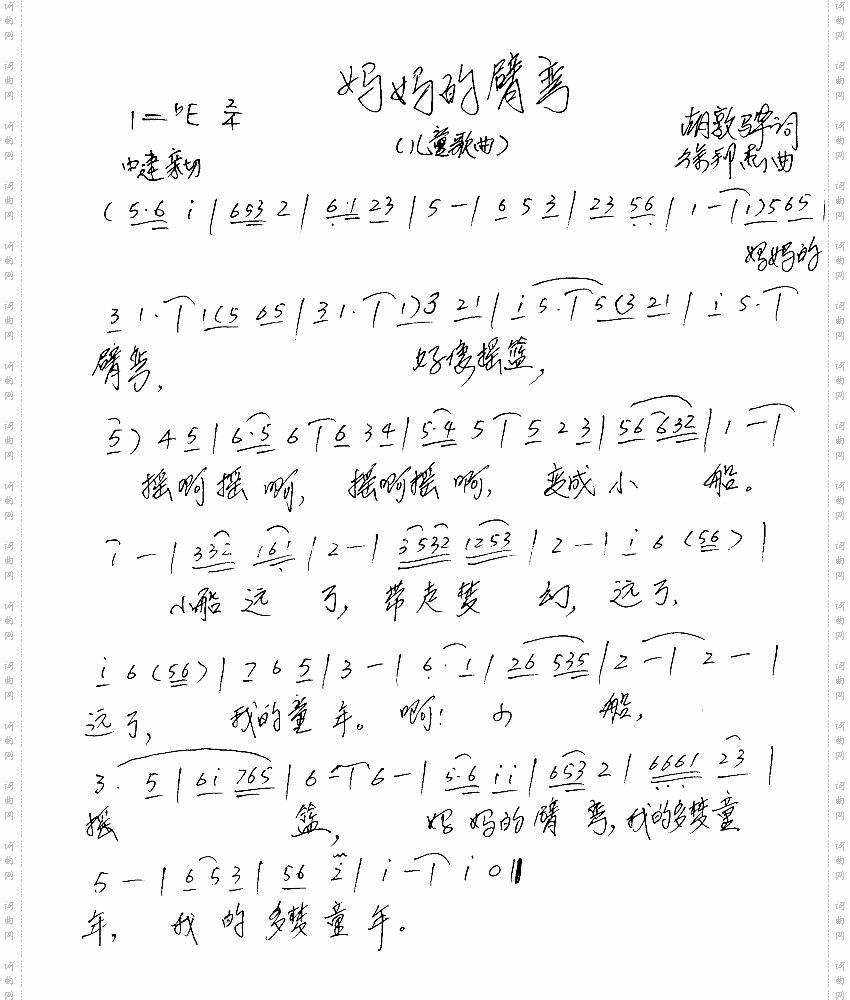 妈妈的臂弯
1=♭E 2/4
(儿童歌曲)
胡敦骅词
中速亲切
曲
(5·6 i|653 2|6·1 23|5-|6 5 3|23 56|1-|1)565|
妈妈的
3 1·|1(5 65|31·|1)3 21|i 5·|5(3 21|i 5·|
臂弯, 好像摇篮,
5) 4 5|6·5 6|6 34|5·4 5|5 2 3|56 632|1-|
摇啊摇啊, 摇啊摇啊, 变成小船。
1-|332 161|2-|3532 1253|2-|i 6 (56)|
小船远了, 带走梦幻, 远了,
i 6(56)|7 6 5|3-|6·1|26 535|2-|2-|
远了, 我的童年。啊! 小船,
3· 5|6i 765|6-|6-|5·6 ii|653 2|6661 23|
摇篮, 妈妈的臂弯,我的多梦童
5-|6 5 3|56 2|i-|i 0‖
年, 我的多梦童年。
词曲网